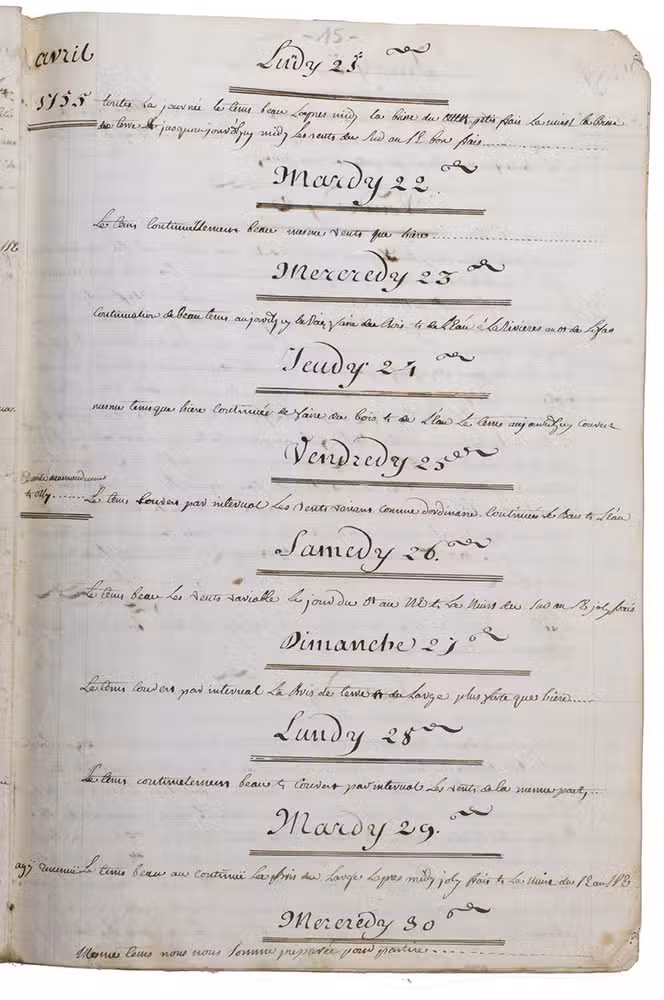 -15-
avril
1755
Lūdy 21e
toutes la journée le tems beau Lapres midy la bise du petit frais La nuist la Brise
de terre jusquaujourd'huy midy les vents du Sud au SE bon frais
Mardy 22
Le tems Continuellement beau mesme vents que hière
Mercredy 23
Continuation de Beau tems aujourdhuy Faire du Bois & de Leau à La Rivieres
Jeudy 24
mesme tems que hière Continuée de faire du bois & de Léau Le tems aujourdhuy couvert
Vendredy 25
Le tems Couvert par interval Les vents variant comme dordinaire. Continuée le Bois & Léau
Samedy 26.
Le tems beau Les vents variable le jour du au NE & La Nuist du Sud au SE joly frais
Dimanche 27
Le tems Couvert par interval La Bris de terre & du Large plus forte que hière
Lundy 28
Le tems continuelement beau & Couvert par interval Les vents de la mesme part
Mardy 29.
Le tems beau au continuë La Bris du Large Lapres midy joly frais & La Nuist du SE au
Mercredy 30
Mesme tems nous nous somme preparée pour partire